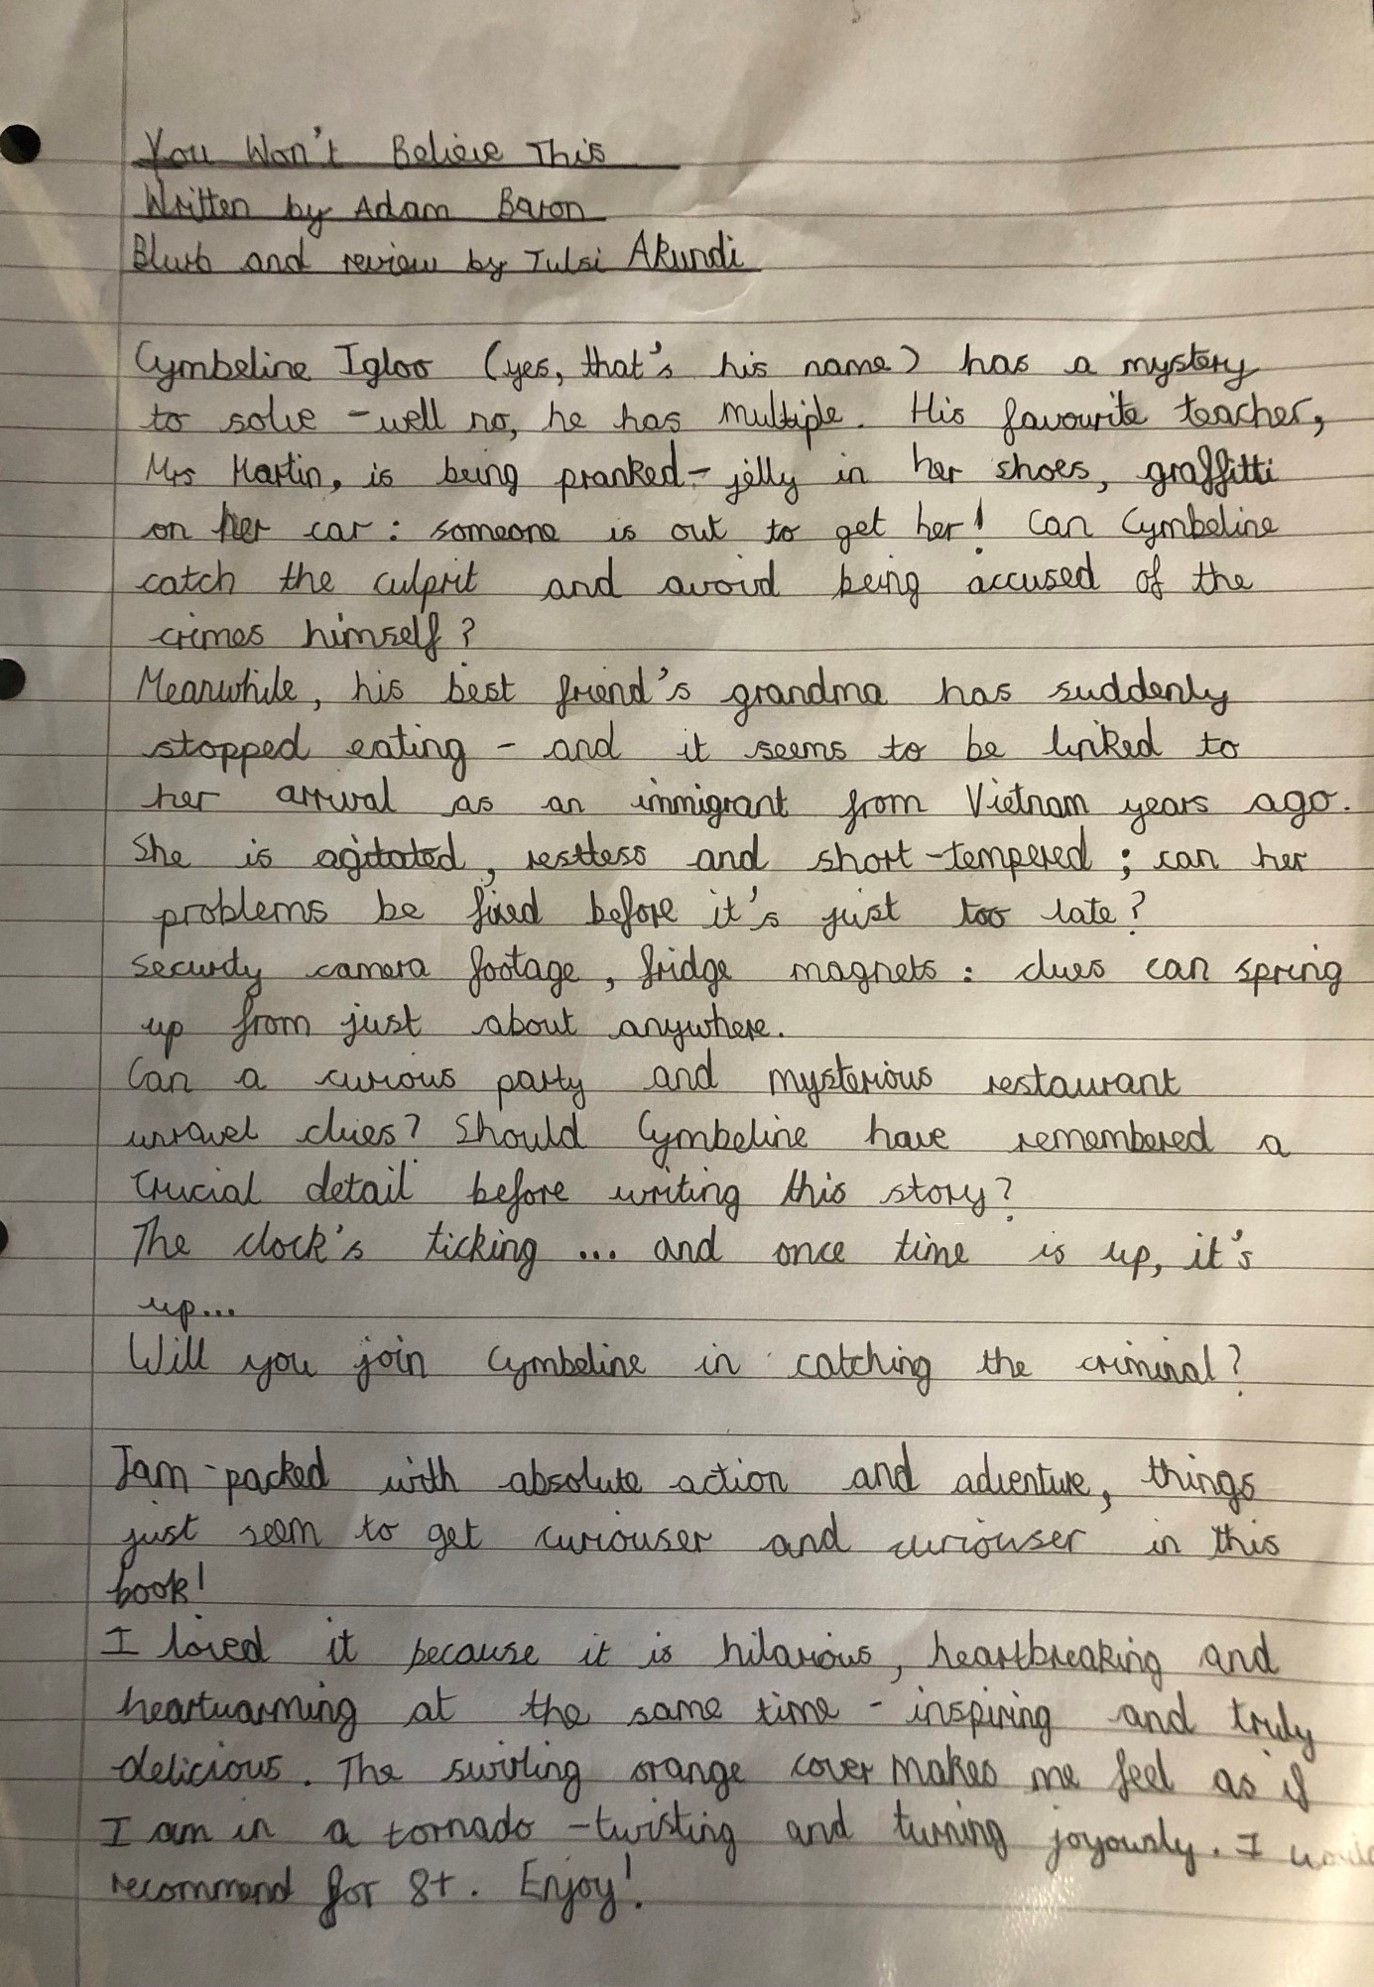 You Won't Believe This
Written by Adam Baron
Blurb and review by Tulsi Akundi
Cymbeline Igloo (yes, that's his name) has a mystery
to solve - well no, he has multiple. His favourite teacher,
Mrs Martin, is being pranked - jelly in her shoes, graffitti
on her car: someone is out to get her! Can Cymbeline
catch the culprit and avoid being accused of the
crimes himself?
Meanwhile, his best friend's grandma has suddenly
stopped eating - and it seems to be linked to
her arrival as an immigrant from Vietnam years ago.
She is agitated, restless and short-tempered; can her
problems be fixed before it's just too late?
Security camera footage, fridge magnets: clues can spring
up from just about anywhere.
Can a curious party and mysterious restaurant
unravel clues? Should Cymbeline have remembered a
crucial detail before writing this story?
The clock's ticking... and once time is up, it's
up...
Will you join Cymbeline in catching the criminal?
Jam-packed with absolute action and adventure, things
just seem to get curiouser and curiouser in this
book!
I loved it because it is hilarious, heartbreaking and
heartwarming at the same time - inspiring and truly
delicious. The swirling orange cover makes me feel as if
I am in a tornado - twisting and turning joyously. I would
recommend for 8+. Enjoy!